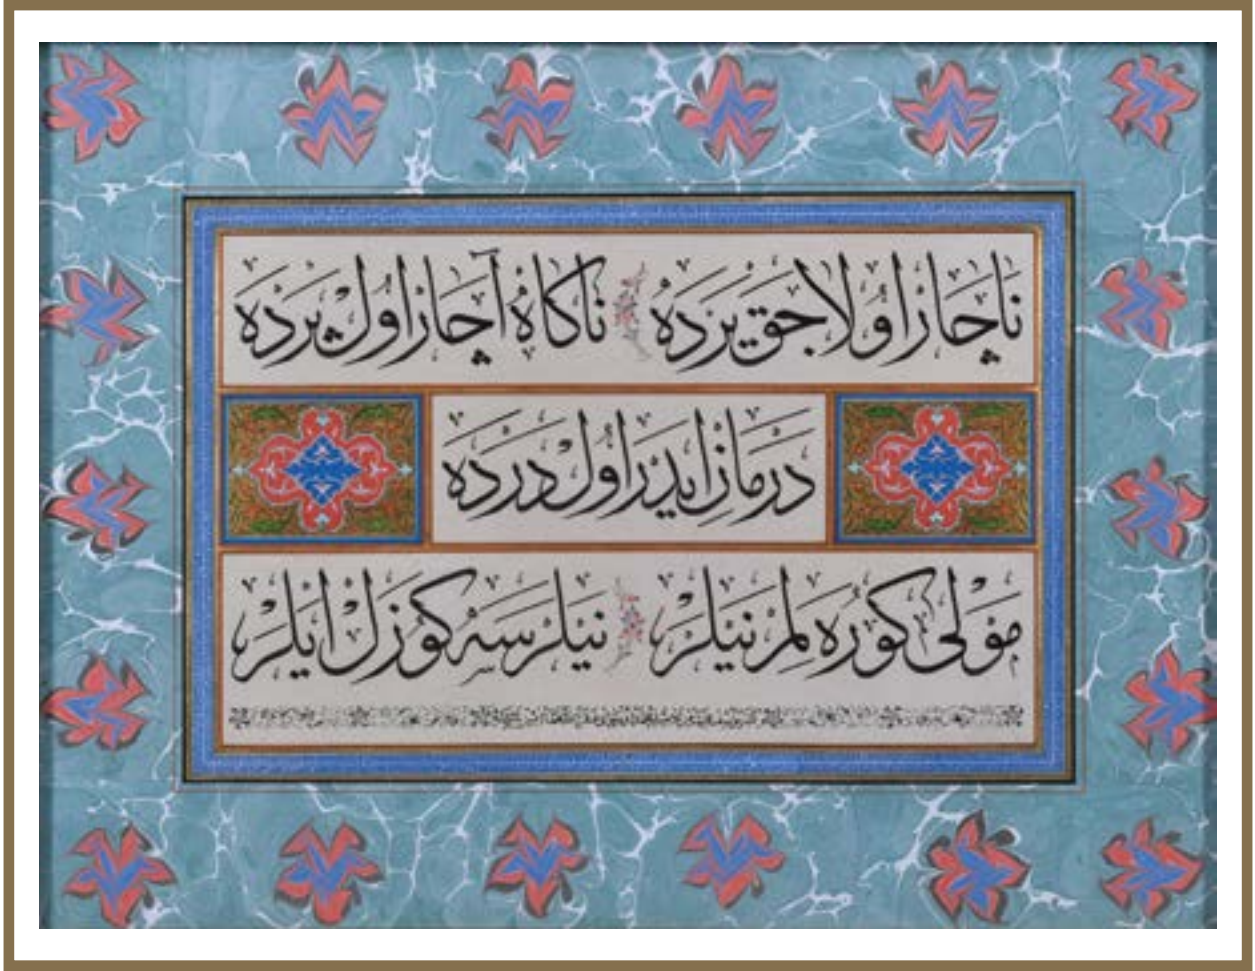 ناچار اولاجق یرده ناکاه آچار اول پرده
درمان ایدر اول درده
مولی کوره لم نیلر نیلرسه کوزل ایلر